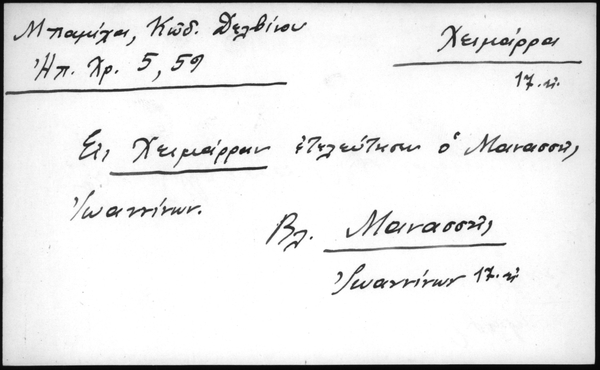 Μπαμίχα, Κῶδ. Δελβίνου
Ἠπ. Χρ. 5, 59
Χειμάρρα
17. αἰ.
Εἰς Χειμάρραν ἐτελεύτησεν ὁ Μανασσῆς
Ἰωαννίνων.
Βλ. Μανασσῆς
Ἰωαννίνων 17. αἰ